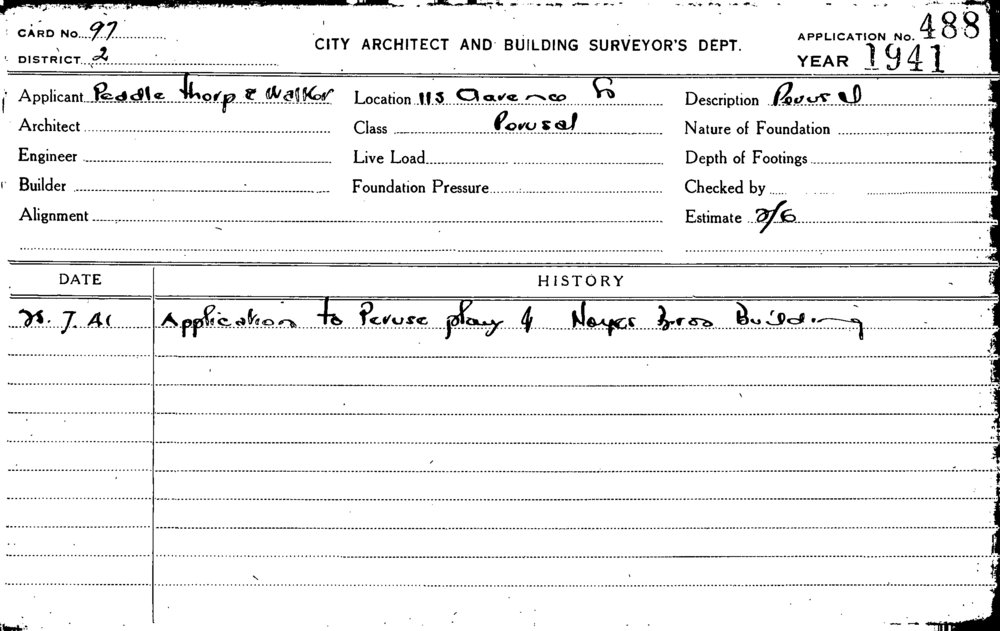 CARD No. 97
CITY ARCHITECT AND BUILDING SURVEYOR'S DEPT.
APPLICATION No. 488
DISTRICT 2
YEAR 1941
Applicant Peddle Thorp & Walker Location 113 Clarence St Description Perusal
Architect Class Perusal Nature of Foundation
Engineer Live Load Depth of Footings
Builder Foundation Pressure Checked by
Alignment Estimate 2/6
DATE HISTORY
7. 41 Application to Peruse plans of Noyes Bros Building